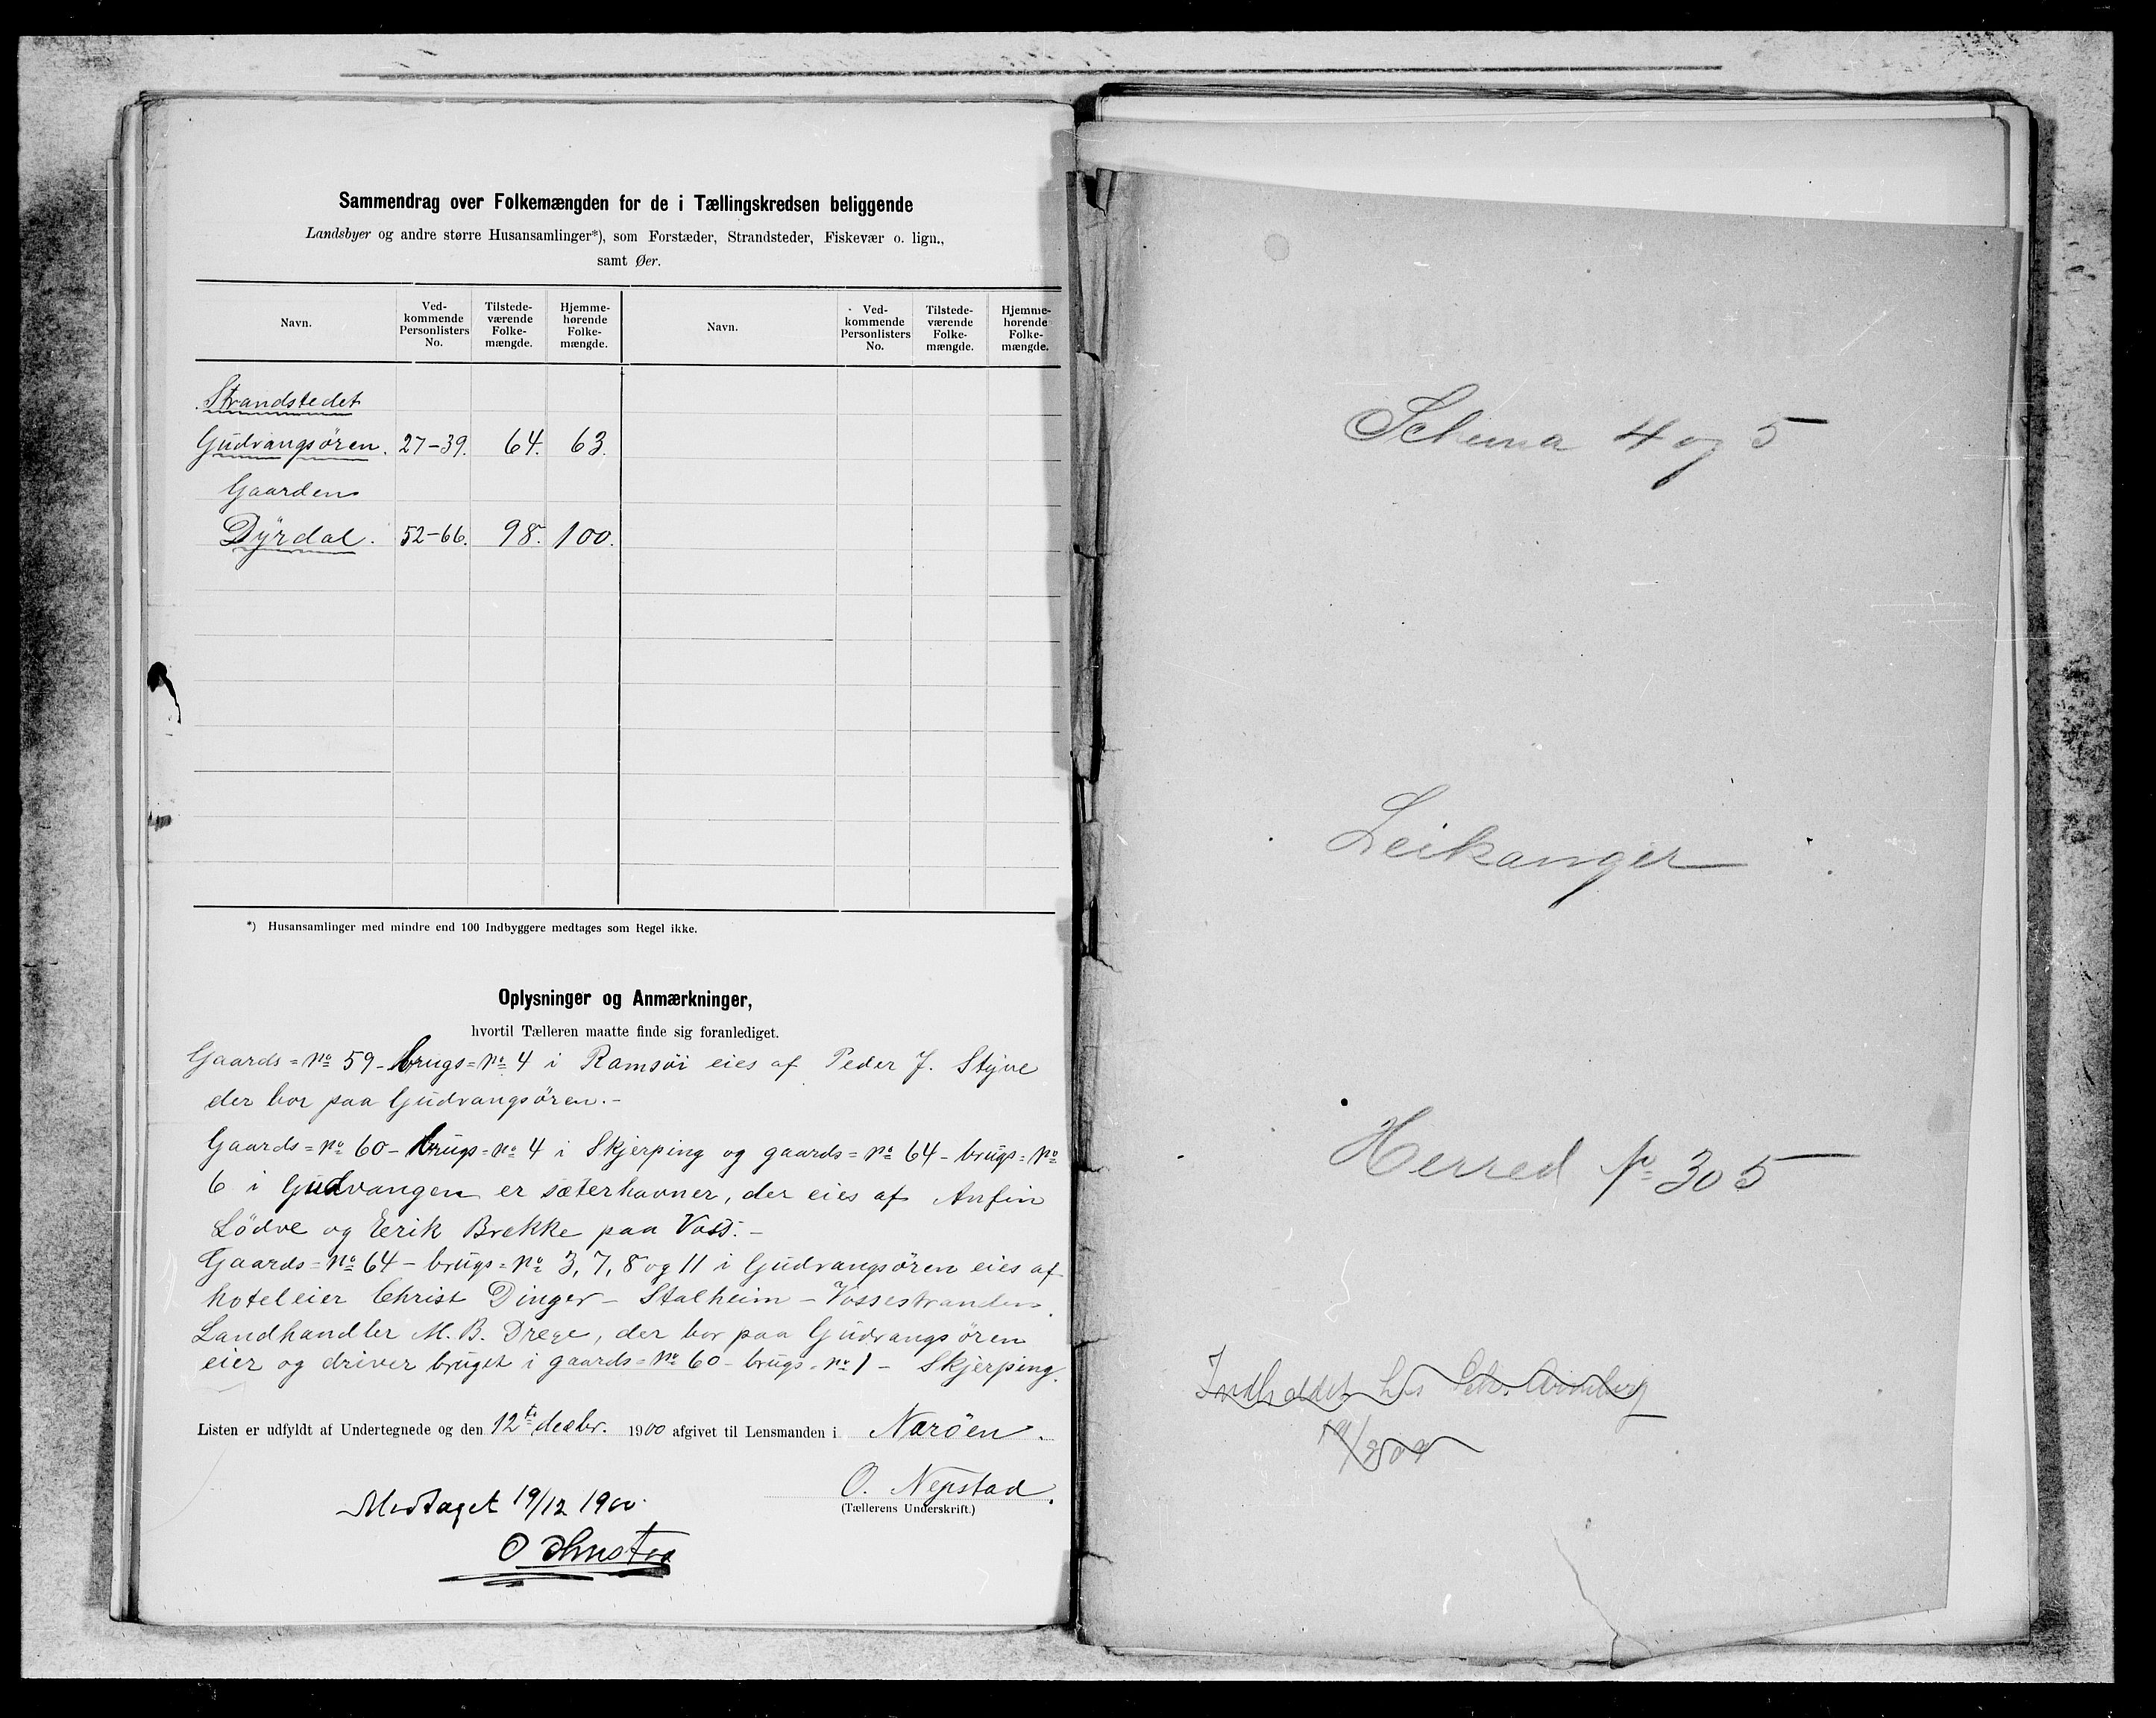 Sammendrag over Folkemængden for de i Tællingskredsen beliggende
Landsbyer og andre større Husansamlinger*), som Forstæder, Strandsteder, Fiskevær o. lign.,
samt Øer.
Navn. Ved-kommende Personlisters No. Tilstede-værende Folke-mængde. Hjemme-hørende Folke-mængde. Navn. Ved-kommende Personlisters No. Tilstede-værende Folke-mængde. Hjemme-hørende Folke-mængde.
Strandstedet
Gudvangsören. 27-39. 64. 63.
Gaarden
Dyrdal. 52-66. 98. 100.
*) Husansamlinger med mindre end 100 Indbyggere medtages som Regel ikke.
Oplysninger og Anmærkninger,
hvortil Tælleren maatte finde sig foranlediget.
Gaards=No 59-brugs=No 4 i Ramsöi eies af Peder J. Styve
der bor paa Gudvangsören.-
Gaards=No 60-brugs=No 4 i Skjerping og gaards=No 64-brugs=No
6 i Gudvangen er sæterhavner, der eies af Anfin
Lödve og Eerik Brekke paa Voss.-
Gaards=No 64-brugs=No 3, 7, 8 og 11 i Gudvangsören eies af
hoteleier Christ Dinger-Stalheim-Vossestranden.
Landhandler M. B. Drege, der bor paa Gudvangsören
eier og driver bruget i gaards=No 60-brugs=No 1-Skjerping.
Listen er udfyldt af Undertegnede og den 12te decbr. 1900 afgivet til Lensmanden i Naröen.
O. Nepstad.
(Tællerens Underskrift.)
Modtaget 19/12 1900.
Schema 4 og 5
Leikanger
Herred No 305